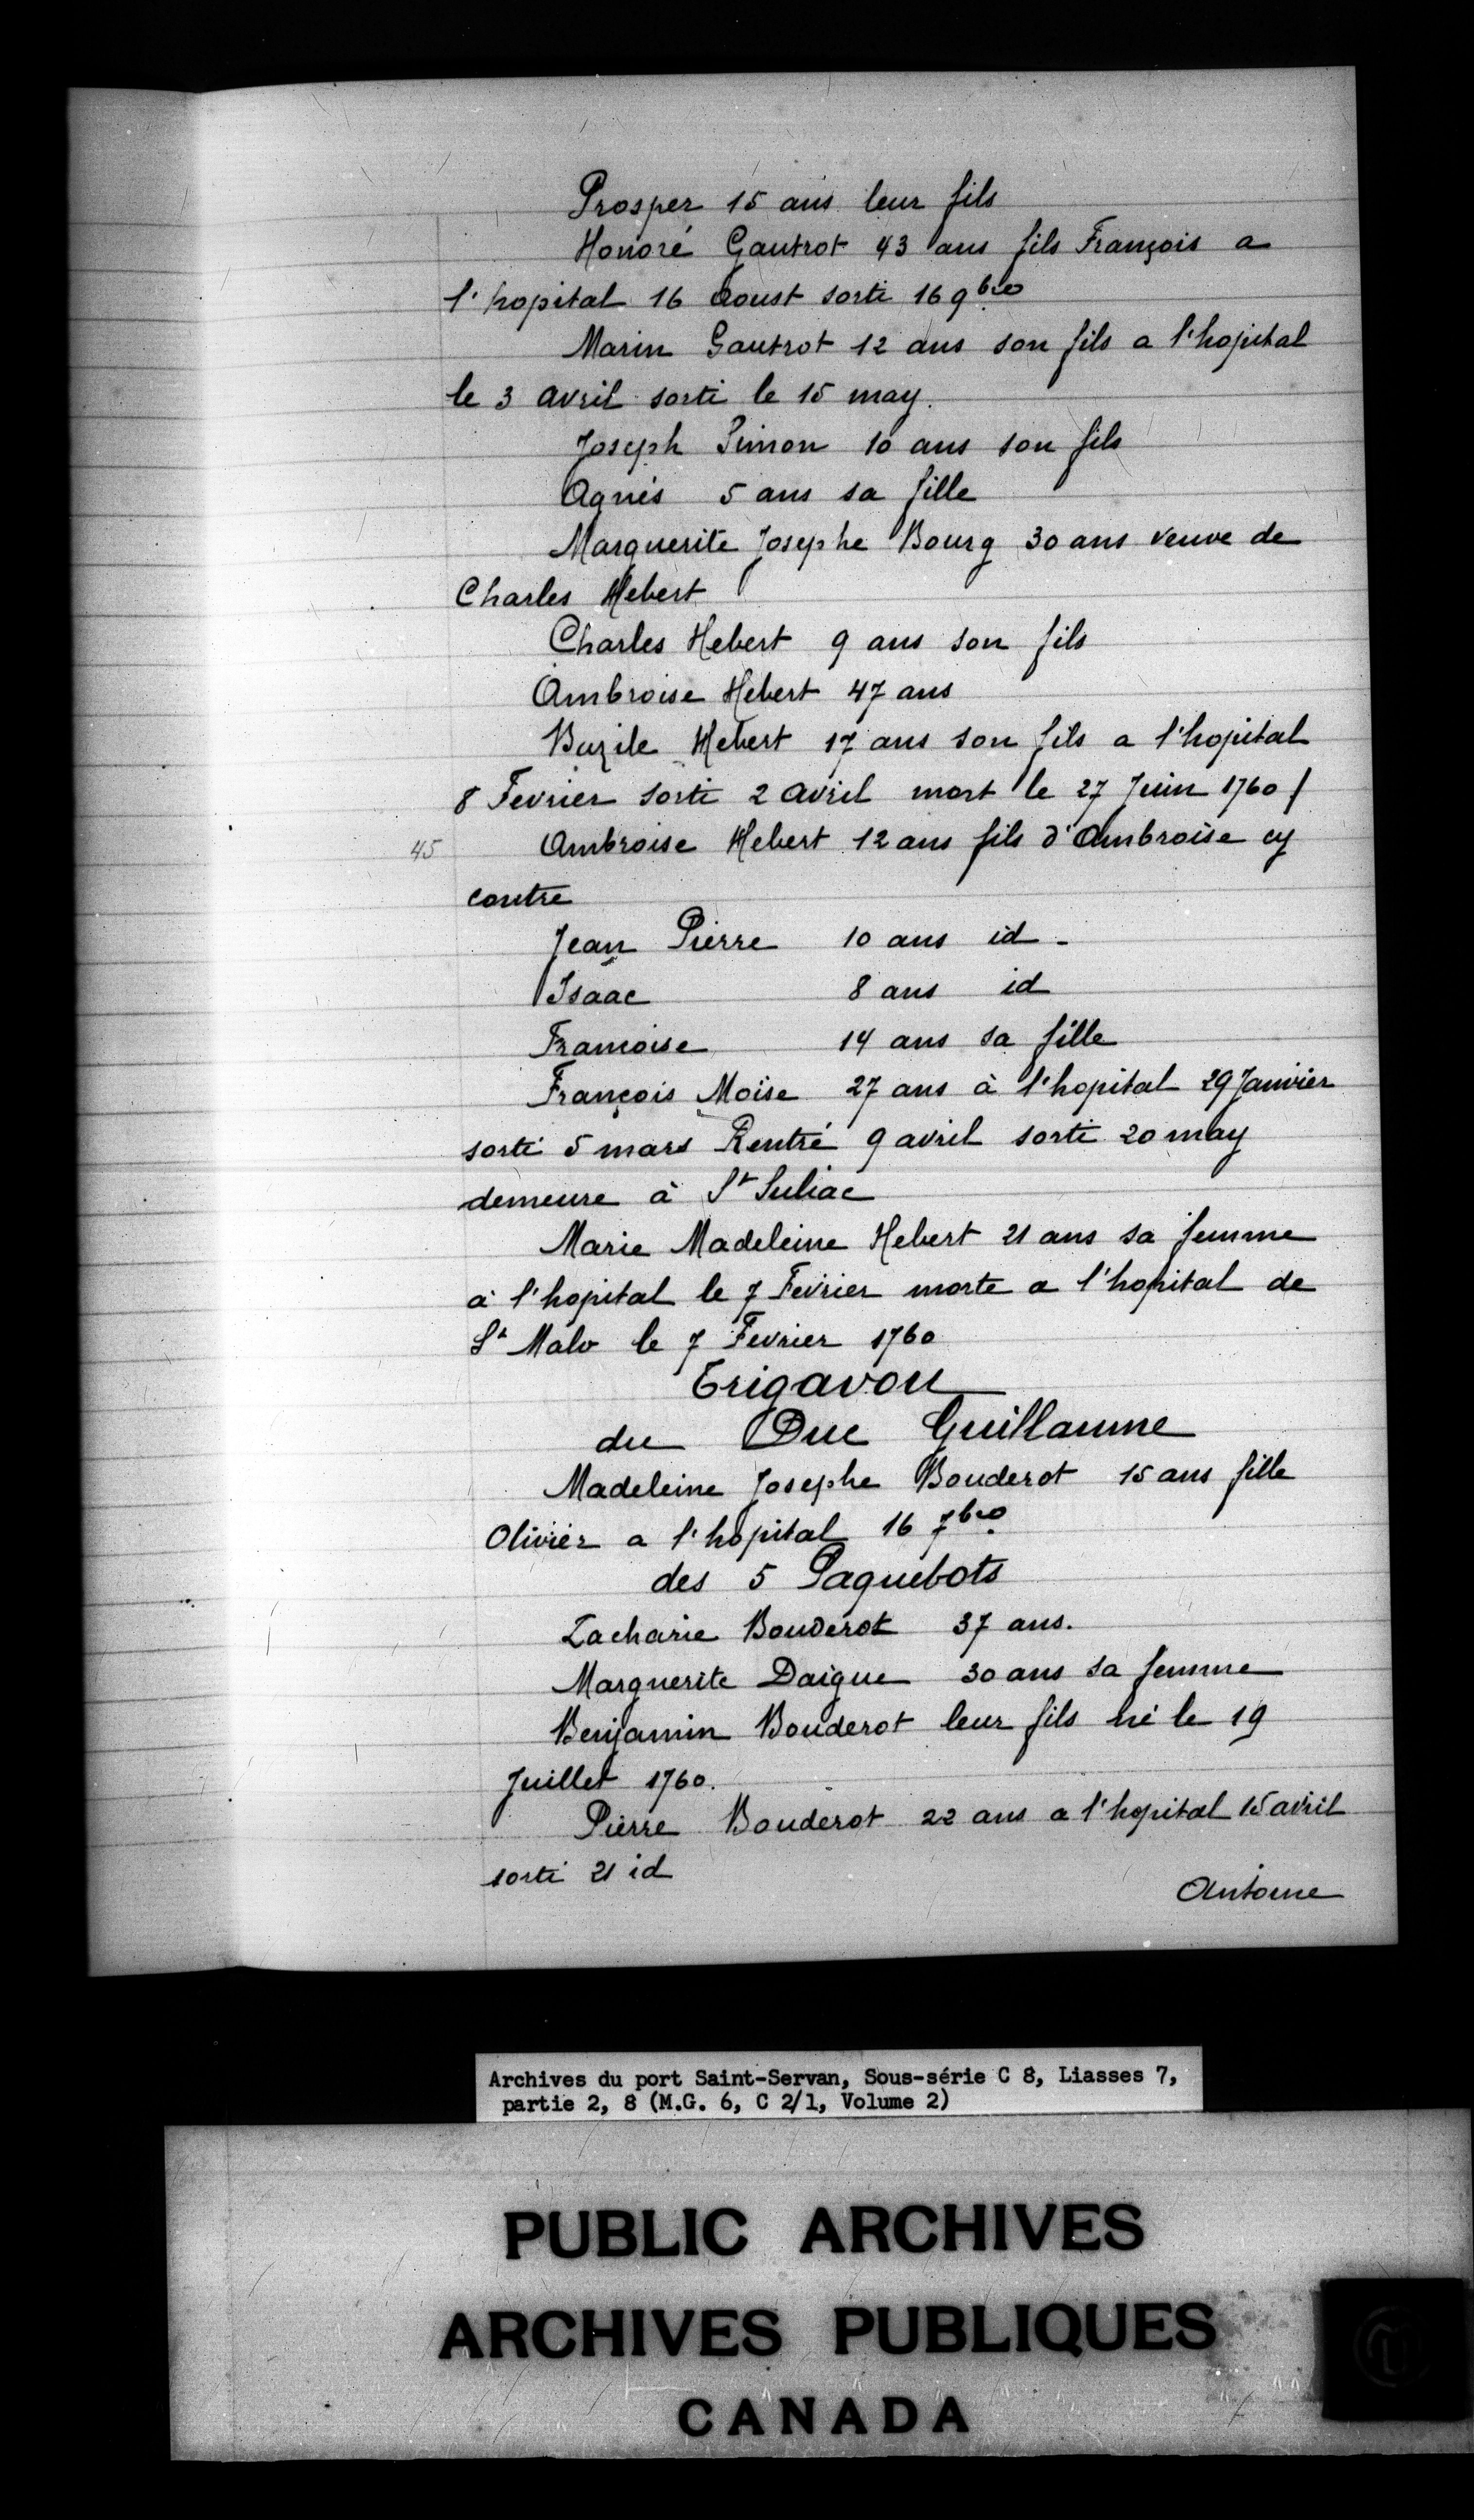 Prosper 15 ans leur fils
Honoré Gautrot 43 ans fils François a
l'hopital 16 Aoust sorti 16 9bre
Marin Gautrot 12 ans son fils a l'hopital
le 3 avril sorti le 15 may.
Joseph Simon 10 ans son fils
Agnés 5 ans sa fille
Marguerite Josephe Bourg 30 ans veuve de
Charles Hebert
Charles Hebert 9 ans son fils
Ambroise Hebert 47 ans
Bazile Hebert 17 ans son fils a l'hopital
8 Fevrier sorti 2 avril mort le 27 Juin 1760 /
45 Ambroise Hebert 12 ans fils d'Ambroise cy
contre
Jean Pierre 10 ans id -
Isaac 8 ans id
Francoise 14 ans sa fille
François Moïse 27 ans à l'hopital 29 Janvier
sorti 5 mars Rentré 9 avril sorti 20 may
demeure à St Suliac
Marie Madeleine Hebert 21 ans sa femme
à l'hopital le 7 Fevrier morte a l'hopital de
St Malo le 7 Fevrier 1760
Trigavou
du Duc Guillaume
Madeleine Josephe Bouderot 15 ans fille
Olivier a l'hopital 16 7bre
des 5 Paquebots
Zacharie Bouderot 37 ans.
Marguerite Daigue 30 ans sa femme
Benjamin Bouderot leur fils né le 19
Juillet 1760.
Pierre Bouderot 22 ans a l'hopital 15 avril
sorti 21 id
Antoine
Archives du port Saint-Servan, Sous-série C 8, Liasses 7,
partie 2, 8 (M.G. 6, C 2/1, Volume 2)
PUBLIC ARCHIVES
ARCHIVES PUBLIQUES
CANADA